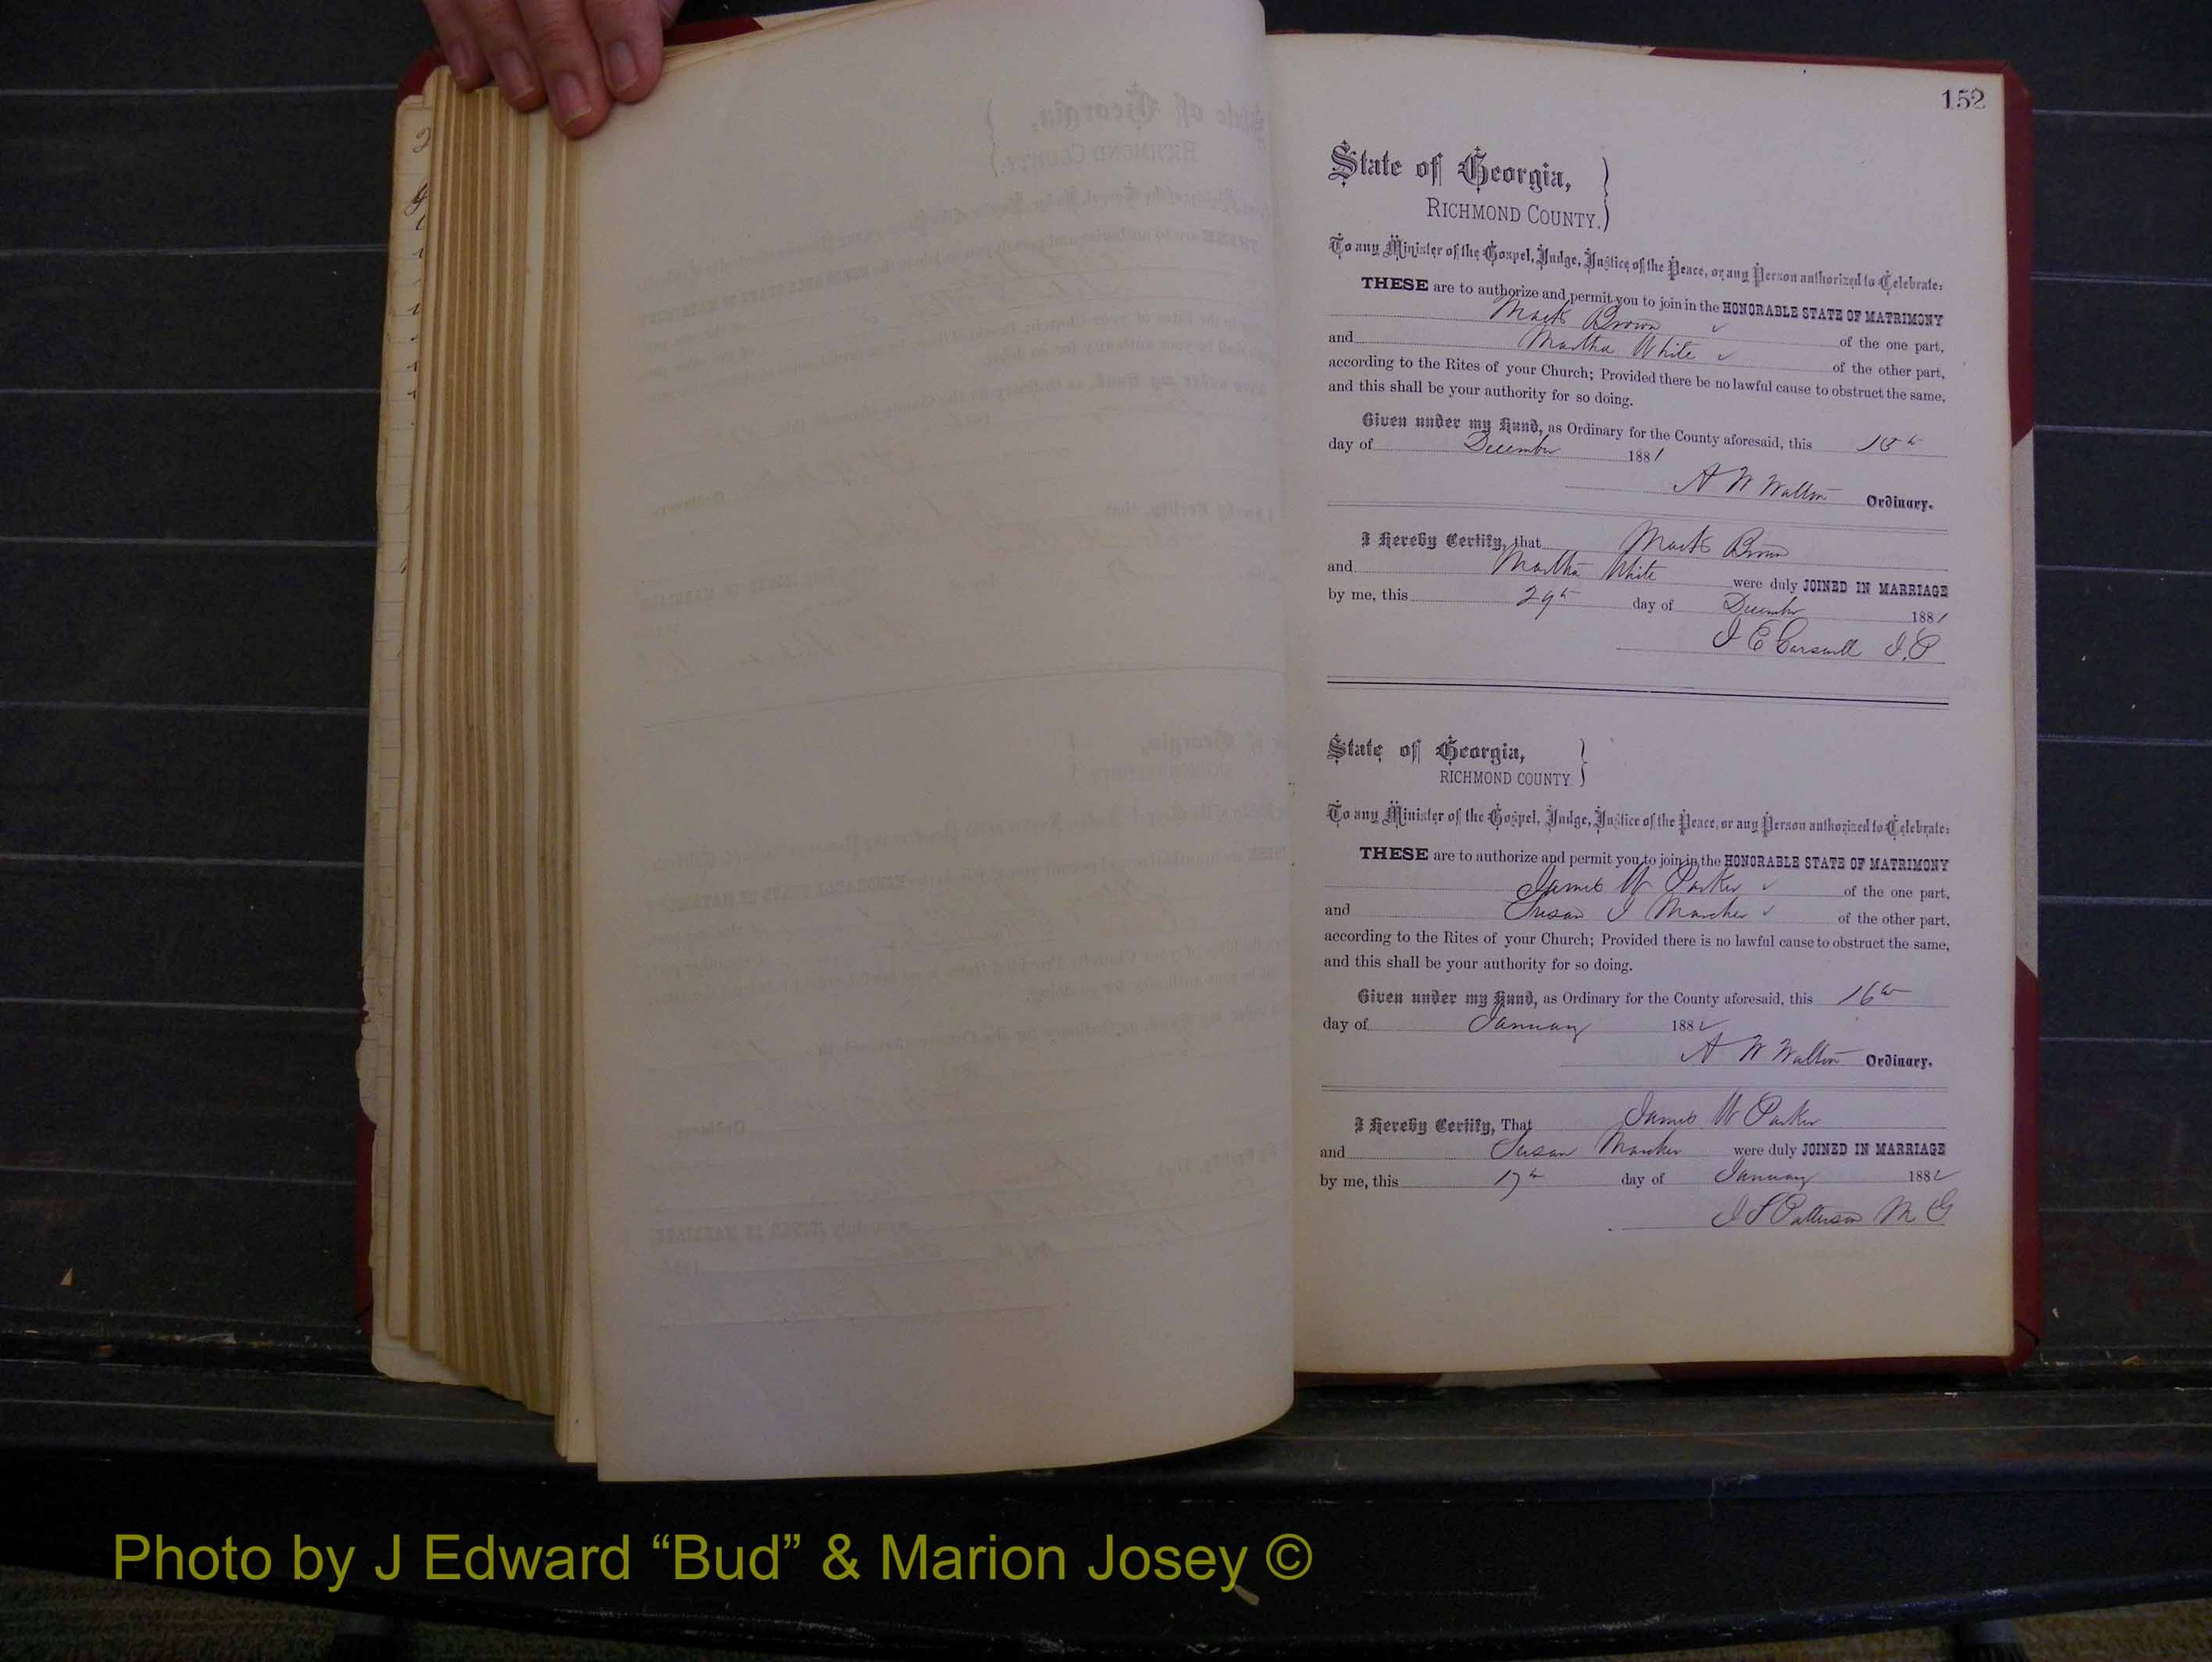 152
State of Georgia,
RICHMOND COUNTY.
To any Minister of the Gospel, Judge, Justice of the Peace, or any Person authorized to Celebrate:
THESE are to authorize and permit you to join in the HONORABLE STATE OF MATRIMONY
Mack Brown of the one part,
and Martha White of the other part,
according to the Rites of your Church; Provided there be no lawful cause to obstruct the same,
and this shall be your authority for so doing.
Given under my Hand, as Ordinary for the County aforesaid, this
day of December 1881
A W Walton Ordinary.
I Hereby Certify, that Mack Brown
and Martha White were duly JOINED IN MARRIAGE
by me, this 29th day of December 1881
J E Carswell J.P
State of Georgia,
RICHMOND COUNTY
To any Minister of the Gospel, Judge, Justice of the Peace, or any Person authorized to Celebrate:
THESE are to authorize and permit you to join in the HONORABLE STATE OF MATRIMONY
James W Parker of the one part,
and Susan J of the other part,
according to the Rites of your Church; Provided there is no lawful cause to obstruct the same,
and this shall be your authority for so doing.
Given under my Hand, as Ordinary for the County aforesaid, this 16th
day of January 1882
A W Walton Ordinary.
I Hereby Certify, That James W Parker
and Susan were duly JOINED IN MARRIAGE
by me, this 17th day of January 1882
J S Patterson M G
Photo by J Edward “Bud” & Marion Josey ©